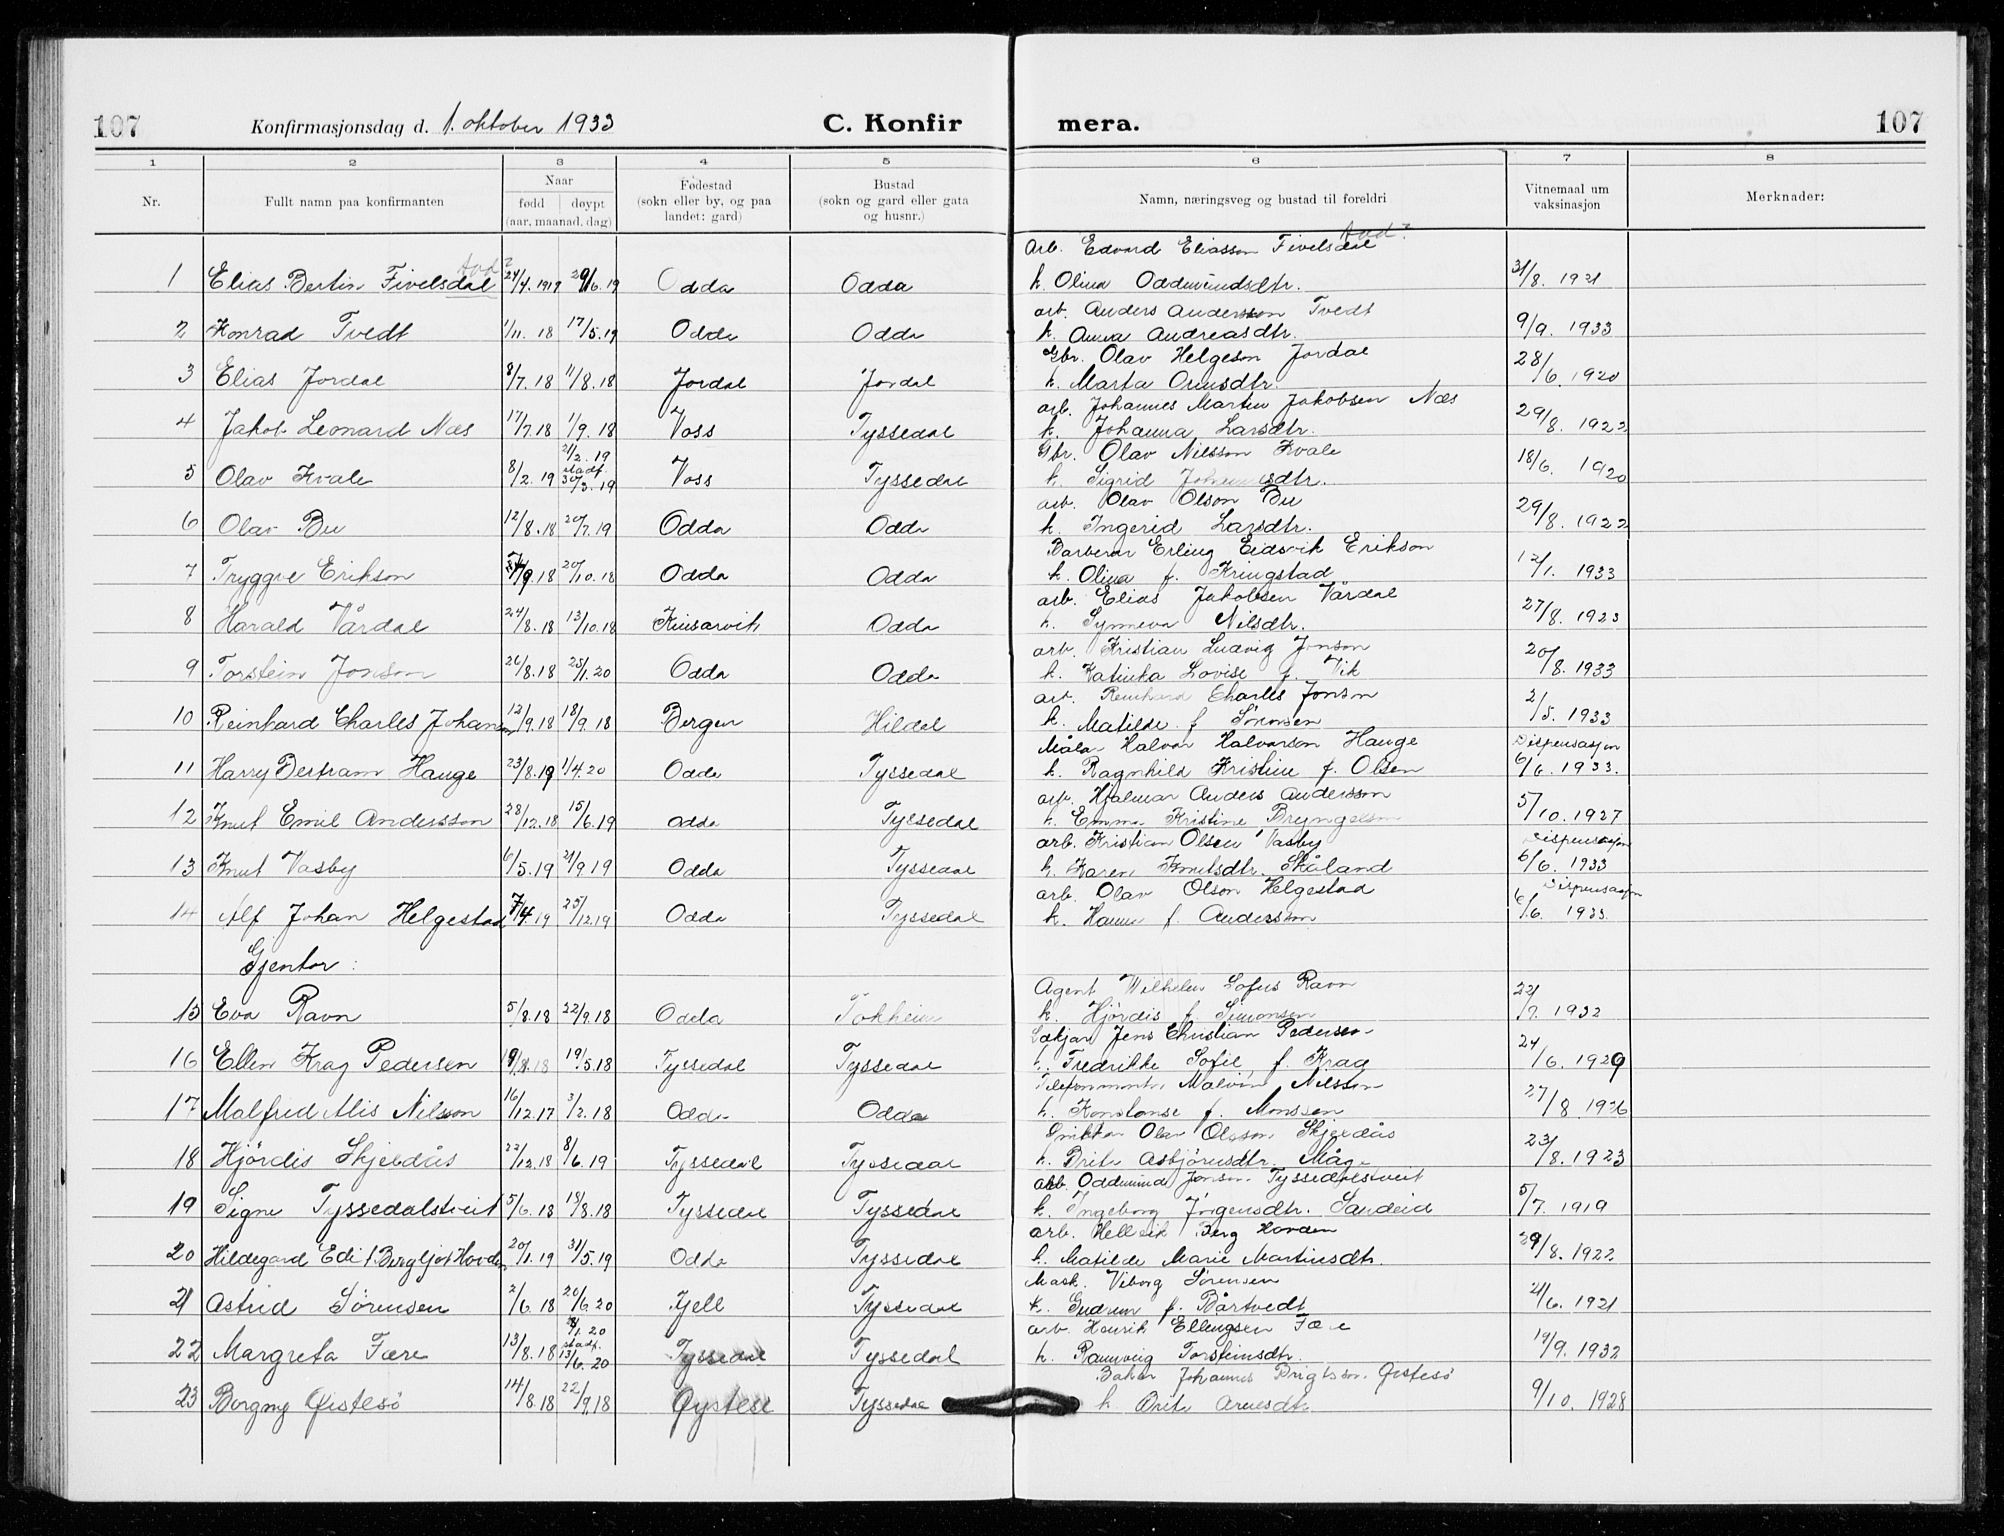 107 Konfirmasjonsdag d. 1. oktober 1933 C. Konfir mera. 107
1 2 3 4 5 6 7 8
Nr. Fullt namn paa konfirmanten Naar fødd døypt (aar, maanad, dag) Fødestad (sokn eller by, og paa landet: gard) Bustad (sokn og gard eller gata og husnr.) Namn, næringsveg og bustad til foreldri Vitnemaal um vaksinasjon Merknader:
arb. Edvard Eliasson Fivelsdal
1 Elias Bertin Fivelsdal 24/4. 1919 29/6. 19 Odda Odda k. Olina Oddmundsdtr. 31/8. 1921
arb. Anders Andersson Tvedt
2 Konrad Tvedt 1/11. 18 17/5. 19 Odda Odda k. Anna Andreasdtr. 9/9. 1933
Gbr. Olav Helgeson Jordal
3 Elias Jordal 8/7. 18 11/8. 18 Jordal Jordal k. Marta Ormsdtr. 28/6. 1920
arb. Johannes Martin Jakobsen Næs
4 Jakob Leonard Næs 17/7. 18 1/9. 18 Voss Tyssedal k. Johanna Larsdtr. 29/8. 1922
Gbr. Olav Nilsson Kvale
5 Olav Kvale 8/2. 19 21/2. 19 stadf. 30/3. 19 Voss Tyssedal k. Sigrid Johannesdtr. 18/6. 1920
arb. Olav Olson Bu
6 Olav Bu 12/8. 18 20/7. 19 Odda Odda k. Ingerid Larsdtr. 29/8. 1922
Barberar Erling Eidsvik Erikson
7 Tryggve Erikson /9. 18 20/10. 18 Odda Odda k. Olina f. Kringstad 12/1. 1933
arb. Elias Jakobsen Vårdal
8 Harald Vårdal 24/8. 18 13/10. 18 Kinsarvik Odda k. Synneva Nilsdtr. 27/8. 1923
arb. Kristian Ludvig Jonson
9 Torstein Jonson 26/8. 18 25/1. 20 Odda Odda k. Katinka Lovise f. Vik 20/8. 1933
arb. Reinhard Charles Jonson
10 Reinhard Charles Johansen 12/9. 18 18/9. 18 Bergen Hildal k. Matilde f. Simonsen 2/5. 1933
Målar Halvor Halvorson Hauge Dispensasjon
11 Harry Bertram Hauge 23/8. 19 1/4. 20 Odda Tyssedal k. Ragnhild Kristine f. Olsen 6/6. 1933.
arb. Hjalmar Anders Andersson
12 Knut Emil Andersson 28/12. 18 15/6. 19 Odda Tyssedal k. Emma Kristine Bryngelson 5/10. 1927
arb. Kristian Olsen Vasby Dispensasjon
13 Knut Vasby 6/5. 19 21/9. 19 Odda Tyssedal k. Karen Knutsdtr. Skåland 6/6. 1933
arb. Olav Olson Helgestad Dispensasjon
14 Alf Johan Helgestad 7/4. 19 25/12. 19 Odda Tyssedal k. Hanna f. Andersson 6/6. 1933
Gjentor:
Agent Wilhelm Sofus Ravn
15 Eva Ravn 5/8. 18 22/9. 18 Odda Tokheim k. Hjørdis f. Simonsen 22/7. 1932
Jens Christian Pedersen
16 Ellen Krag Pedersen 19/5. 18 Tyssedal Tyssedal k. Fredrikke Sofie f. Krag 24/6. 1929
Telefonmontør Malvin Nilsson
17 Malfred Alis Nilsson 16/12. 17 3/2. 18 Odda Odda k. Konstanse f. Monssen 27/8. 1926
Olav Olsson Skjeldås
18 Hjördis Skjeldås 22/12. 18 8/6. 19 Tyssedal Tyssedal k. Brite Asbjörnsdtr. Måge 23/8. 1923
arb. Oddmund Jonson Tyssedalstveit
19 Signe Tyssedalstveit 5/6. 18 18/8. 18 Tyssedal Tyssedal k. Ingeborg Jörgensdtr. Sandeid 5/7. 1919
arb. Hellvik Berg Hovden
20 Hildegard Edit Bergljot Hovden 20/1. 19 31/5. 19 Odda Tyssedal k. Matilde Marie Martinsdtr. 29/8. 1922
Mask. Viborg Sørensen
21 Astrid Sørensen 2/6. 18 20/6. 20 Fjell Tyssedal k. Gudrun f. Bårtvedt 21/6. 1921
arb. Henrik Ellingsen Fære
22 Margreta Fære 13/8. 18 /1. 20 stadf. 13/6. 20 Tyssedal Tyssedal k. Rannveig Torsteinsdtr. 19/9. 1932
Bakar Johannes Brigtsson Øistesö
23 Borgny Øistesö 14/8. 18 22/9. 18 Øystese Tyssedal k. Brite Arnesdtr. 9/10. 1928